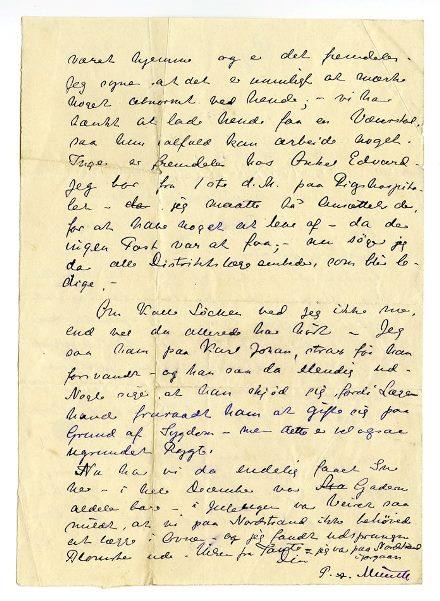 været hjemme og er det fremdeles.
Jeg synes at det er umuligt at mærke
noget abnormt ved hende; – vi har
tænkt at lade hende faa en Vævestol,
saa hun ialfald kan arbeide noget.
Inger er fremdeles hos Onkel Edvard –
Jeg bor fra 1ste d.M. paa Rigshospita-
let – jeg maatte ansættes der,
for at have noget at leve af – da der
ingen Post var at faa; – nu søger jeg
da alle Distriktslægeembeder, som blir le-
dige. –
Om Kalle Løchen ved jeg ikke mer
end vel du allerede har hørt – Jeg
saa ham paa Karl Johan, strax før han
forsvandt – og han saa da elendig ud –
Nogle siger at han skjød sig fordi Lægen
havde fraraadt ham at gifte sig paa
Grund af Sygdom – men dette er vel ogsaa
ugrundet Rygte.
Nu har vi da endelig faaet Sne
her – i hele December var Gaderne
aldeles bare – i Juledagene var Veiret saa
mildt, at vi paa Nordstrand ikke behøved
at lægge i Ovnen og jeg fandt udsprungne
Blomster ude. – jeg var paa Nordstrand
Din
P. A. Munch